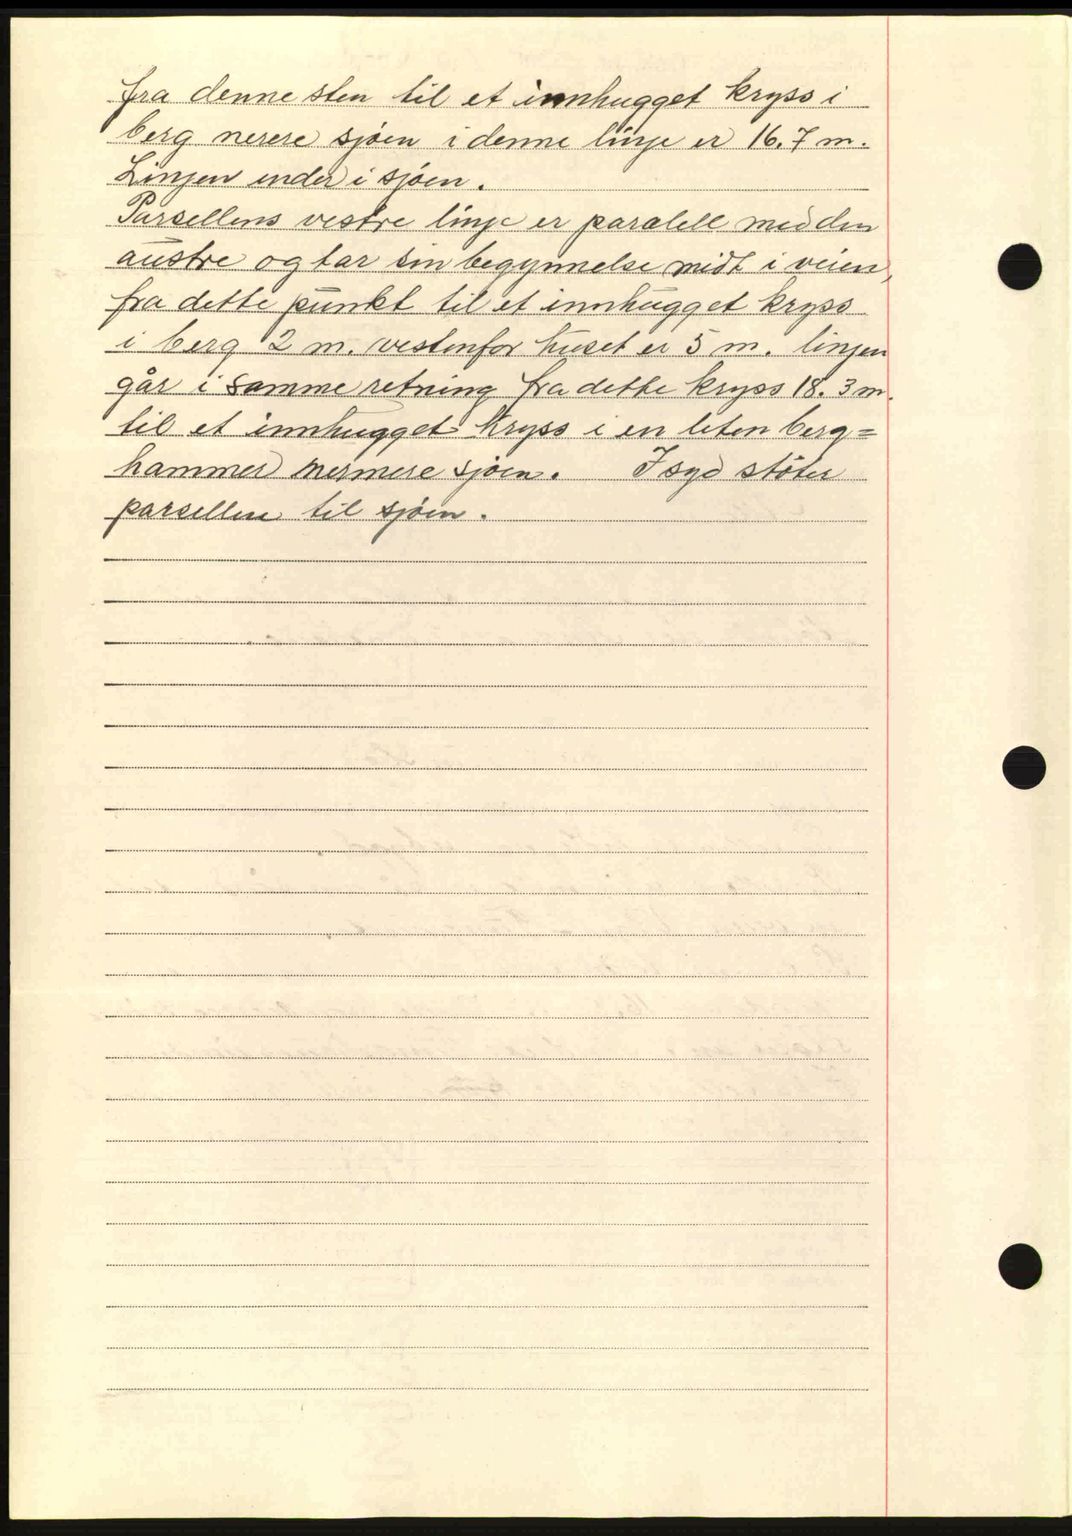 fra denne sten til et innhugget kryss i
berg nerere sjøen i denne linje er 16.7 m.
Linjen ender i sjøen.
Parsellens vestre linje er paralell med den
austre og tar sin begynnelse midt i veien,
fra dette punkt til et innhugget kryss
i berg 2 m. vestenfor huset er 5 m. linjen
går i samme retning fra dette kryss 18.3 m.
til et innhugget kryss i en liten berg=
hammer nermere sjøen. I syd støter
parsellen til sjøen.